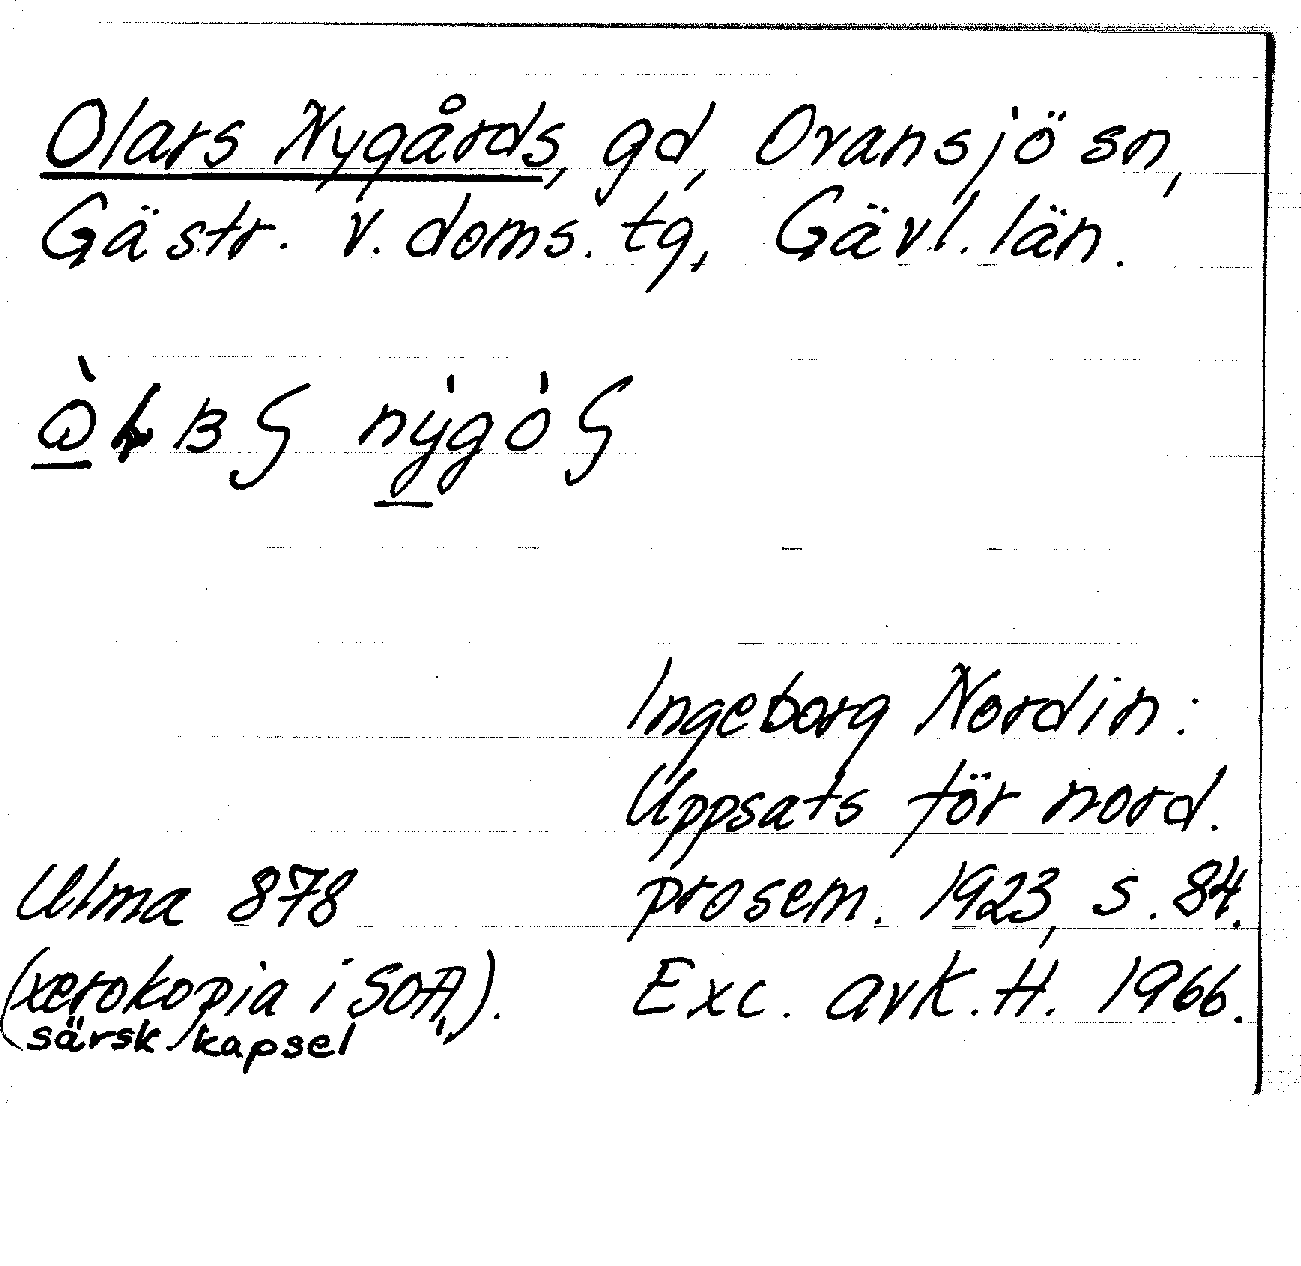 Olars Nygårds, gd, Ovansjö sn,
Gästr. v. doms. tg, Gävl. län.
nýgóʕ
Ingeborg Nordin:
Uppsats för nord.
Ulma 878 prosem. 1923, s. 84.
(xerokopia i SOA,). Exc. avk. H. 1966.
särsk kapsel